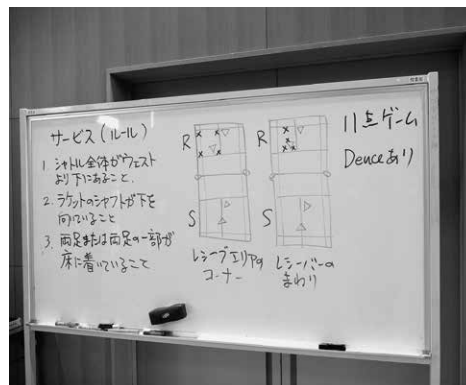 サービス(ルール)
1. シャトル全体がウェスト
より下にあること.
2. ラケットのシャフトが下を
向いていること
3. 両足または両足の一部が
床に着いていること
R
S
レシーブエリアの
コーナー
R
S
レシーバーの
まわり
11点ゲーム
Deuceあり